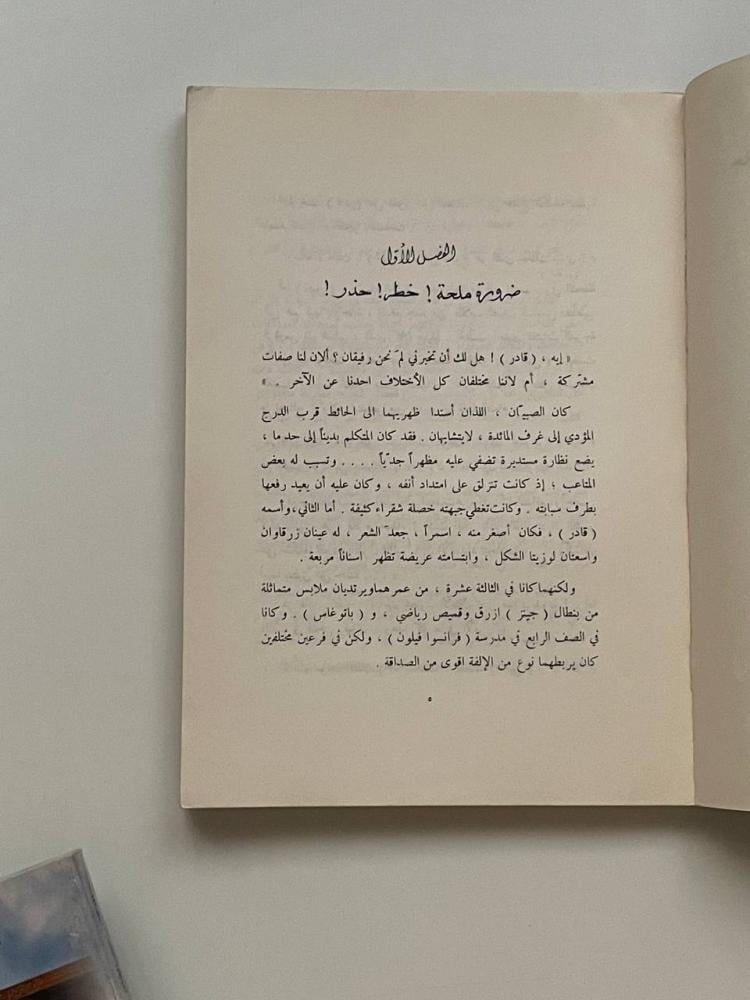 الفصل الأول
ضرورة ملحة ! خطر! حذر !
« إيه ، ( قادر ) ! هل لك أن تخبرني لمَ نحن رفيقان ؟ ألان لنا صفات
مشتركة ، أم لاننا مختلفان كل الأختلاف احدنا عن الآخر . »
كان الصبيّان ، اللذان أسندا ظهريهما الى الحائط قرب الدرج
المؤدي إلى غرف المائدة ، لايتشابهان . فقد كان المتكلم بديناً إلى حد ما ،
يضع نظارة مستديرة تضفي عليه مظهراً جدّياً . . . . وتسبب له بعض
المتاعب ؛ إذ كانت تنزلق على امتداد أنفه ، وكان عليه أن يعيد رفعها
بطرف سبابته . وكانت تغطي جبهته خصلة شقراء كثيفة . أما الثاني، وأسمه
( قادر ) ، فكان أصغر منه ، اسمراً ، جعدَ الشعر ، له عينان زرقاوان
واسعتان لوزيتا الشكل ، وابتسامته عريضة تظهر اسناناً مربعة .
ولكنهما كانا في الثالثة عشرة ، من عمرهما ويرتديان ملابس متماثلة
من بنطال ( جينز ) ازرق وقميص رياضي ، و ( باتوغاس ) . وكانا
في الصف الرابع في مدرسة ( فرانسوا فيلون ) ، ولكن في فرعين مختلفين
كان يربطهما نوع من الإلفة اقوى من الصداقة .
٥